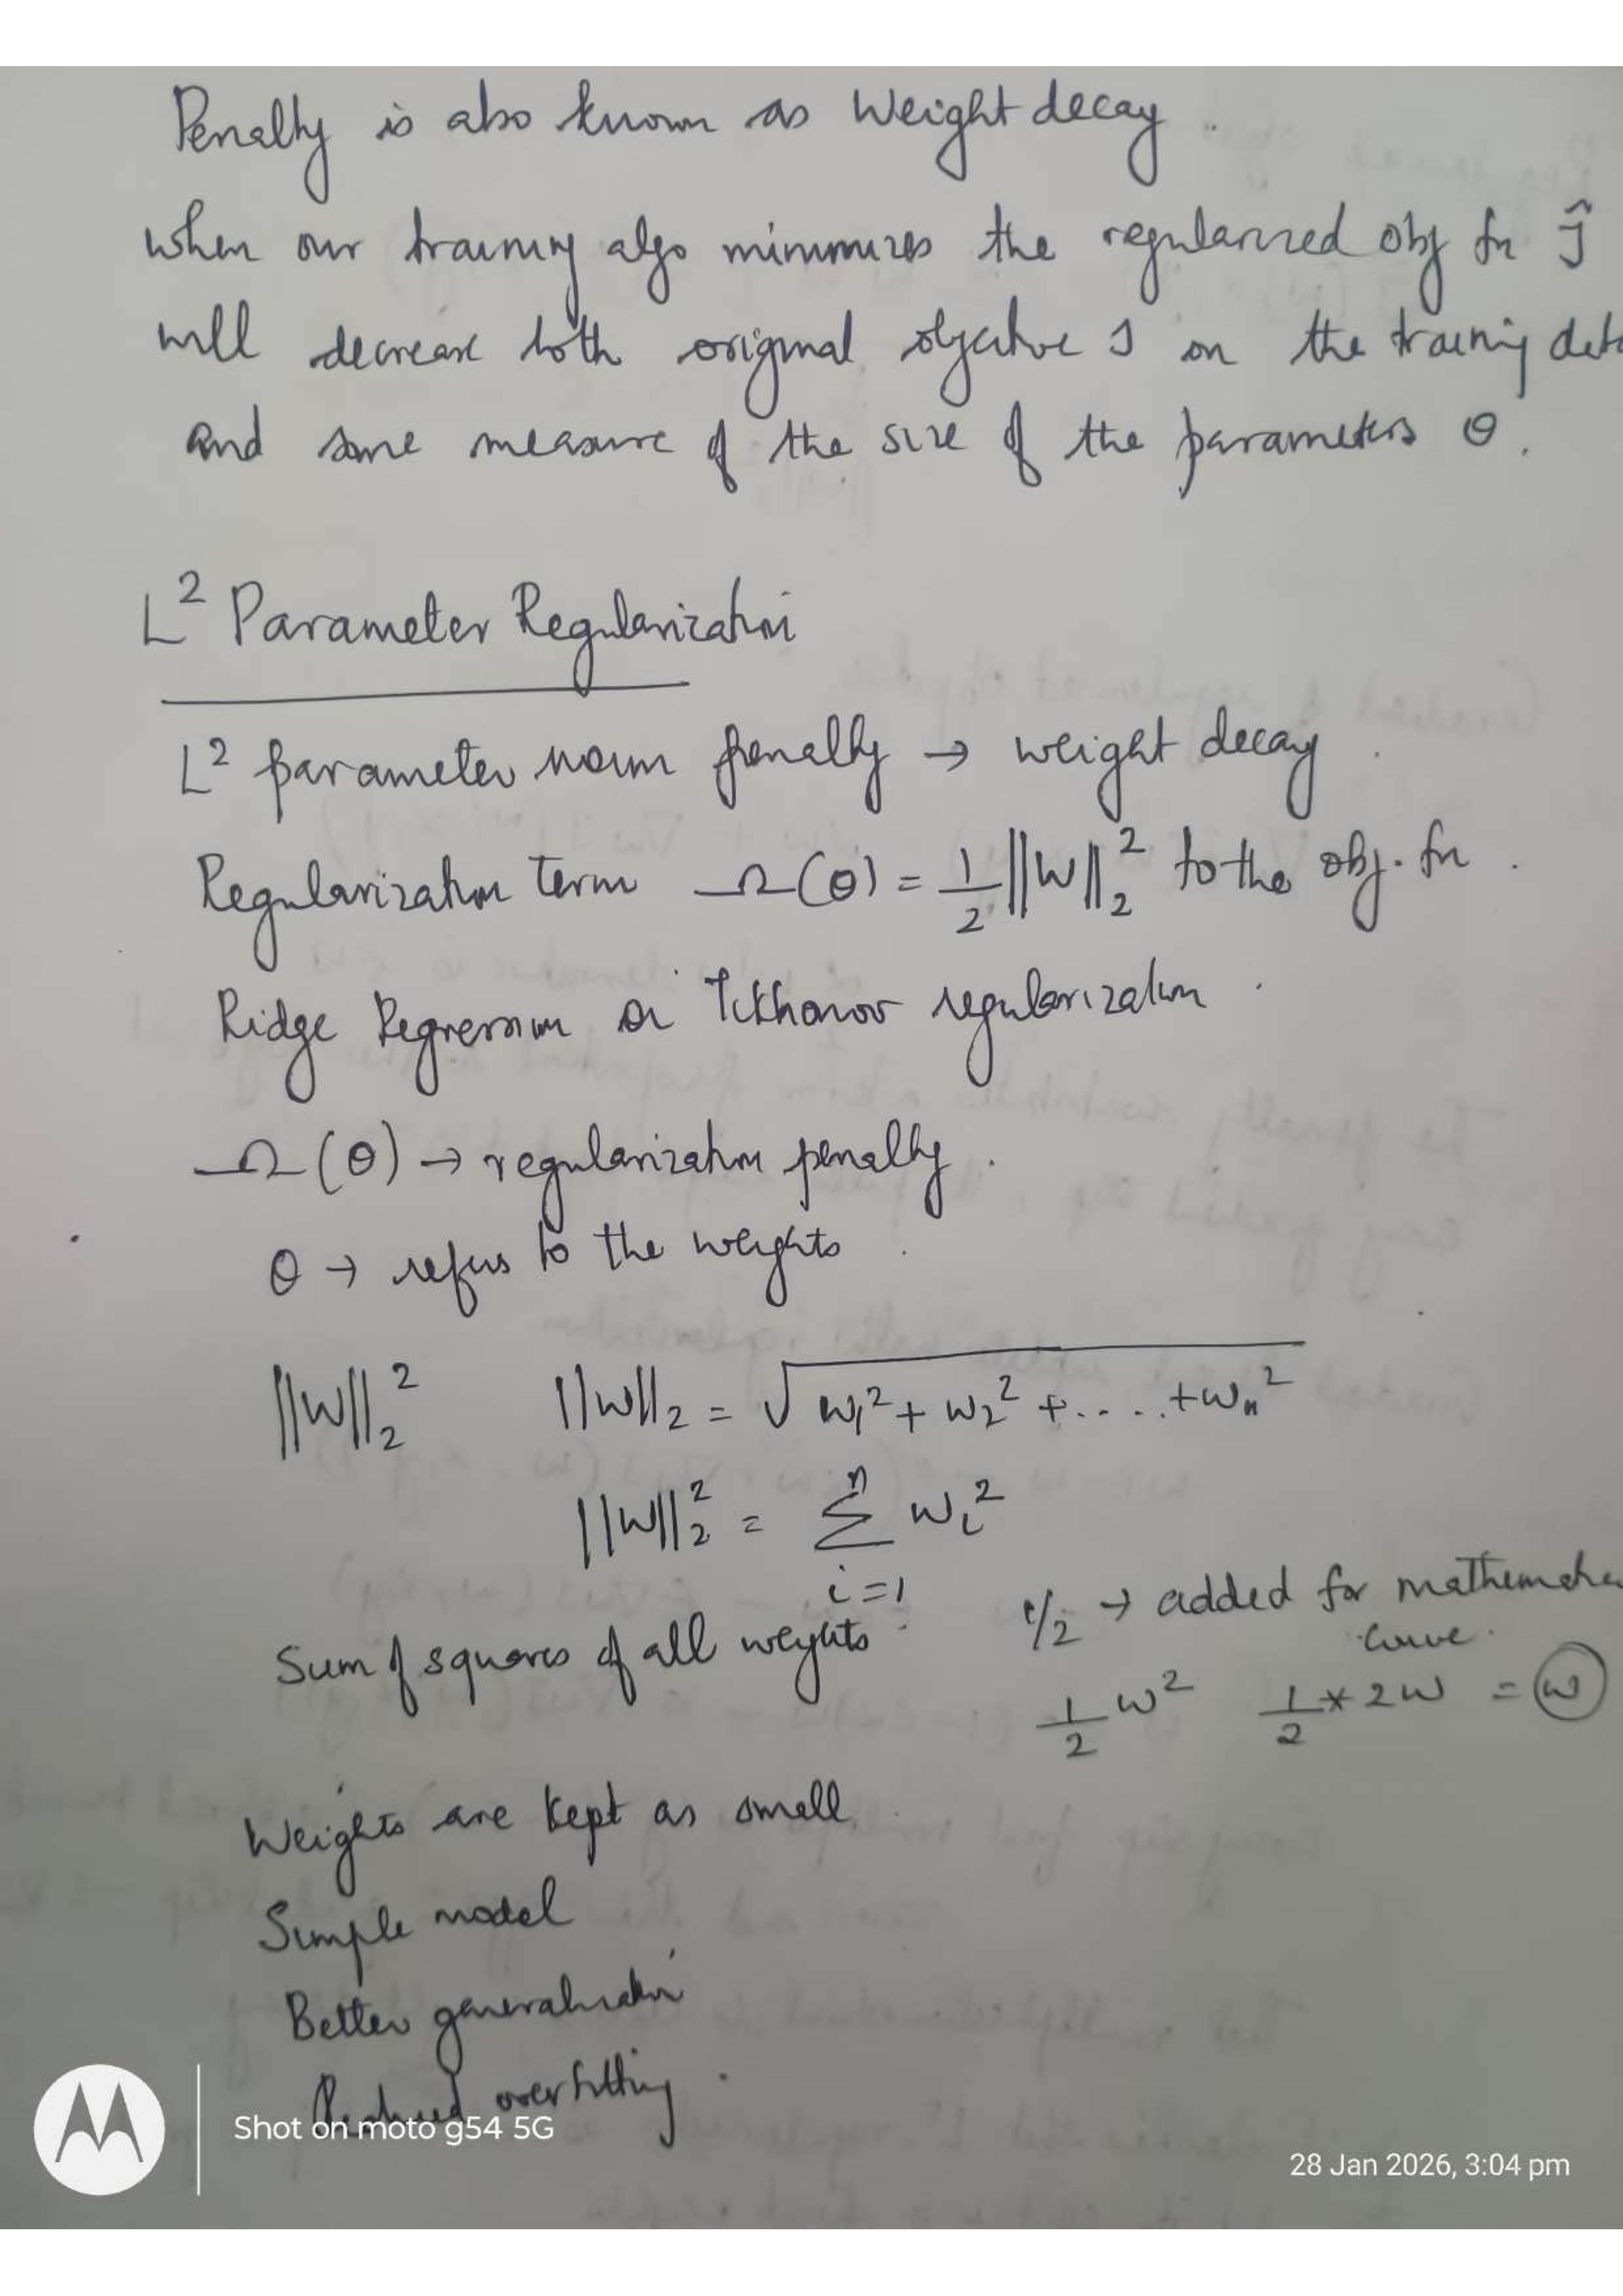 Penalty is also known as Weight decay.
when our training algo minimizes the regularized obj fn J̃
will decrease both original objective J on the training data
and some measure of the size of the parameters θ.
L² Parameter Regularization
L² parameter norm penalty → weight decay.
Regularization term Ω(θ) = 1/2 ||W||₂² to the obj. fn.
Ridge Regression or Tikhonov regularization.
Ω(θ) → regularization penalty.
θ → refers to the weights.
||W||₂² ||W||₂ = √(w₁² + w₂² + ..... + wₙ²)
||W||₂² = Σ i=1 n wᵢ²
1/2 → added for mathematical
Sum of squares of all weights.
1/2 w² 1/2 * 2w = w
Weights are kept as small.
Simple model
Better generalization
Reduced overfitting.
Shot on moto g54 5G
28 Jan 2026, 3:04 pm